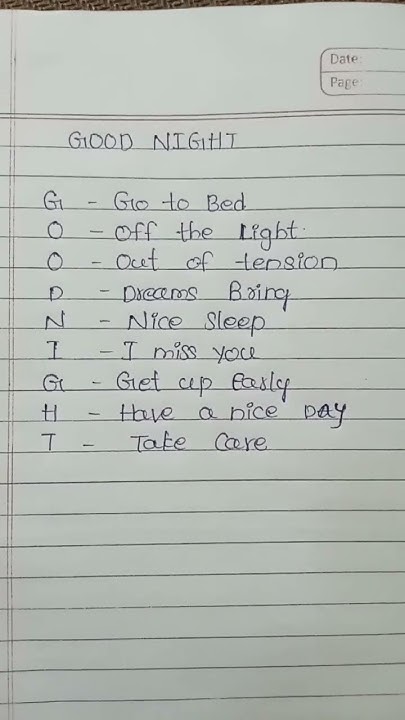 Date:
Page:
GOOD NIGHT
G - Go to Bed
O - Off the Light.
O - Out of tension
D - Dreams Bring
N - Nice Sleep
I - I miss you
G - Get up Easly
H - Have a nice Day
T - Take Care